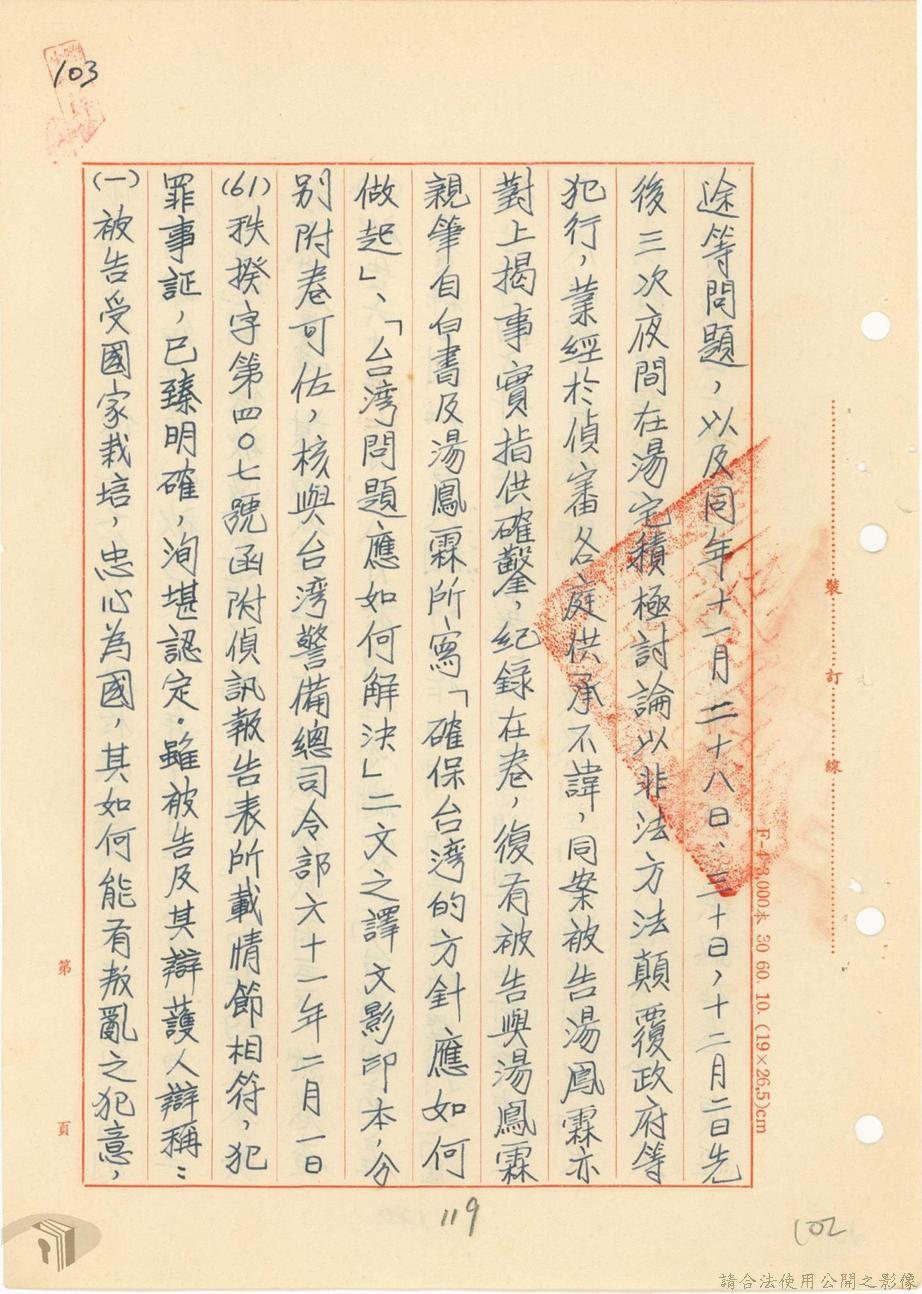 103
途等問題，以及同年十一月二十八日、三十日，十二月二日先
後三次夜間在湯宅積極討論以非法方法顛覆政府等
犯行，業經於偵審各庭供承不諱，同案被告湯鳳霖亦
對上揭事實指供確鑿，紀錄在卷，復有被告與湯鳳霖
親筆自白書及湯鳳霖所寫「確保台湾的方針應如何
做起」、「台湾問題應如何解決」二文之譯文影印本，分
別附卷可佐，核與台湾警備總司令部六十一年二月一日
(61)秩揆字第四〇七號函附偵訊報告表所載情節相符，犯
罪事証，已臻明確，洵堪認定。雖被告及其辯護人辯稱：
(一)被告受國家栽培，忠心為國，其如何能有叛亂之犯意，
裝訂線
F-4 3,000本 30 60. 10. (19×26.5)cm
第 頁
119
102
請合法使用公開之影像